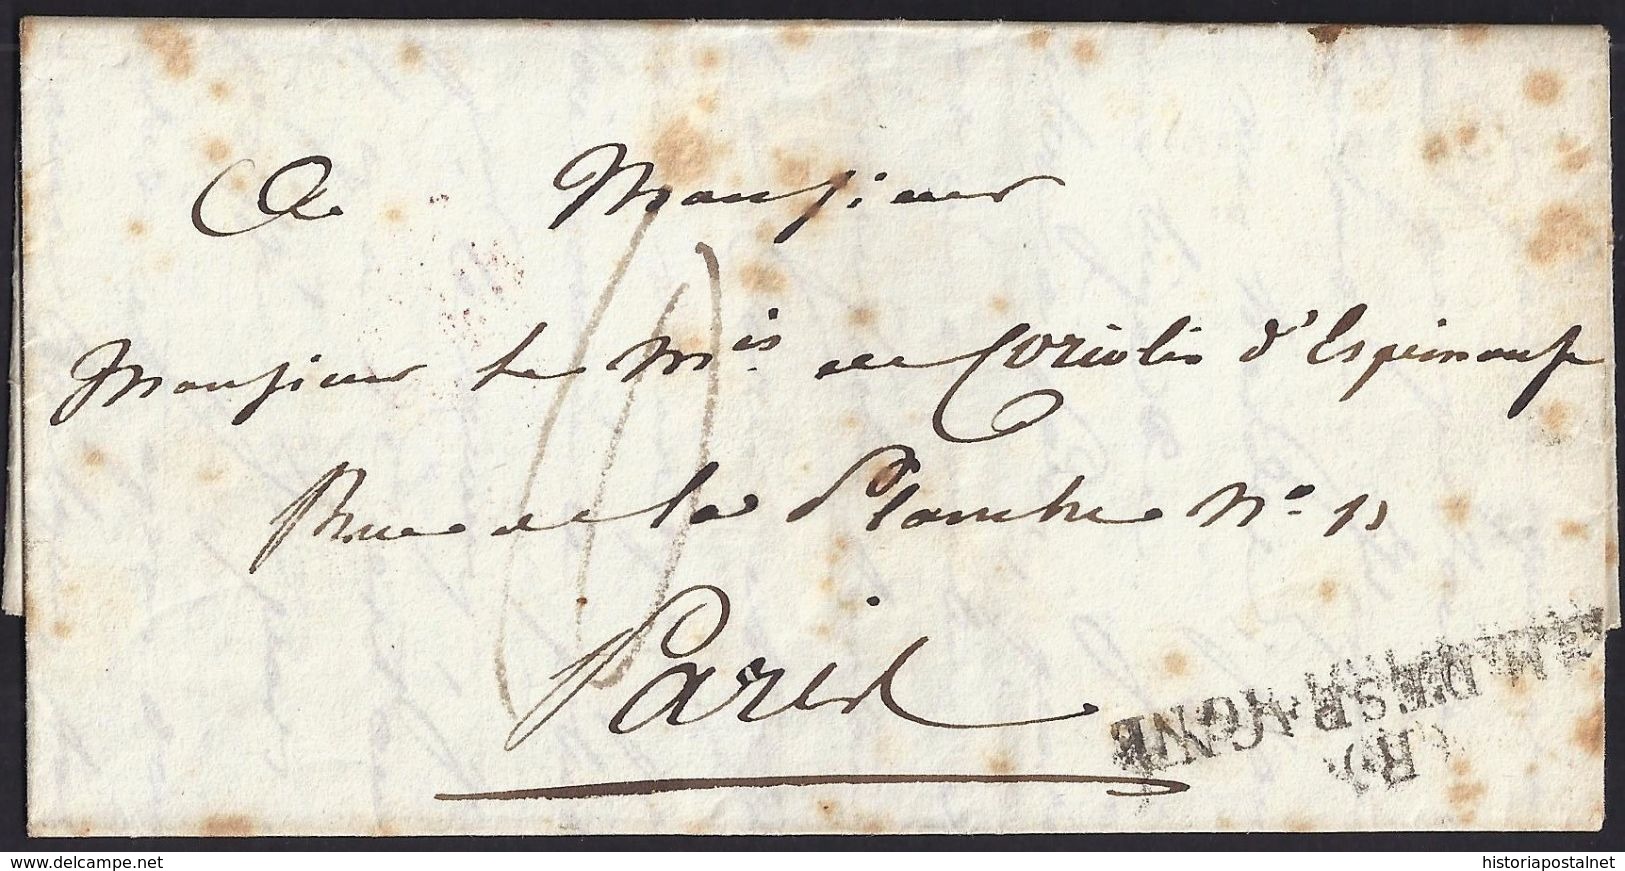 A Monsieur
Monsieur le Mis de Coriolis d'Espinouse
Rue de la Planche No 13
Paris
ARM. D'ESPAGNE
(R)
www.delcampe.net
historiapostalnet